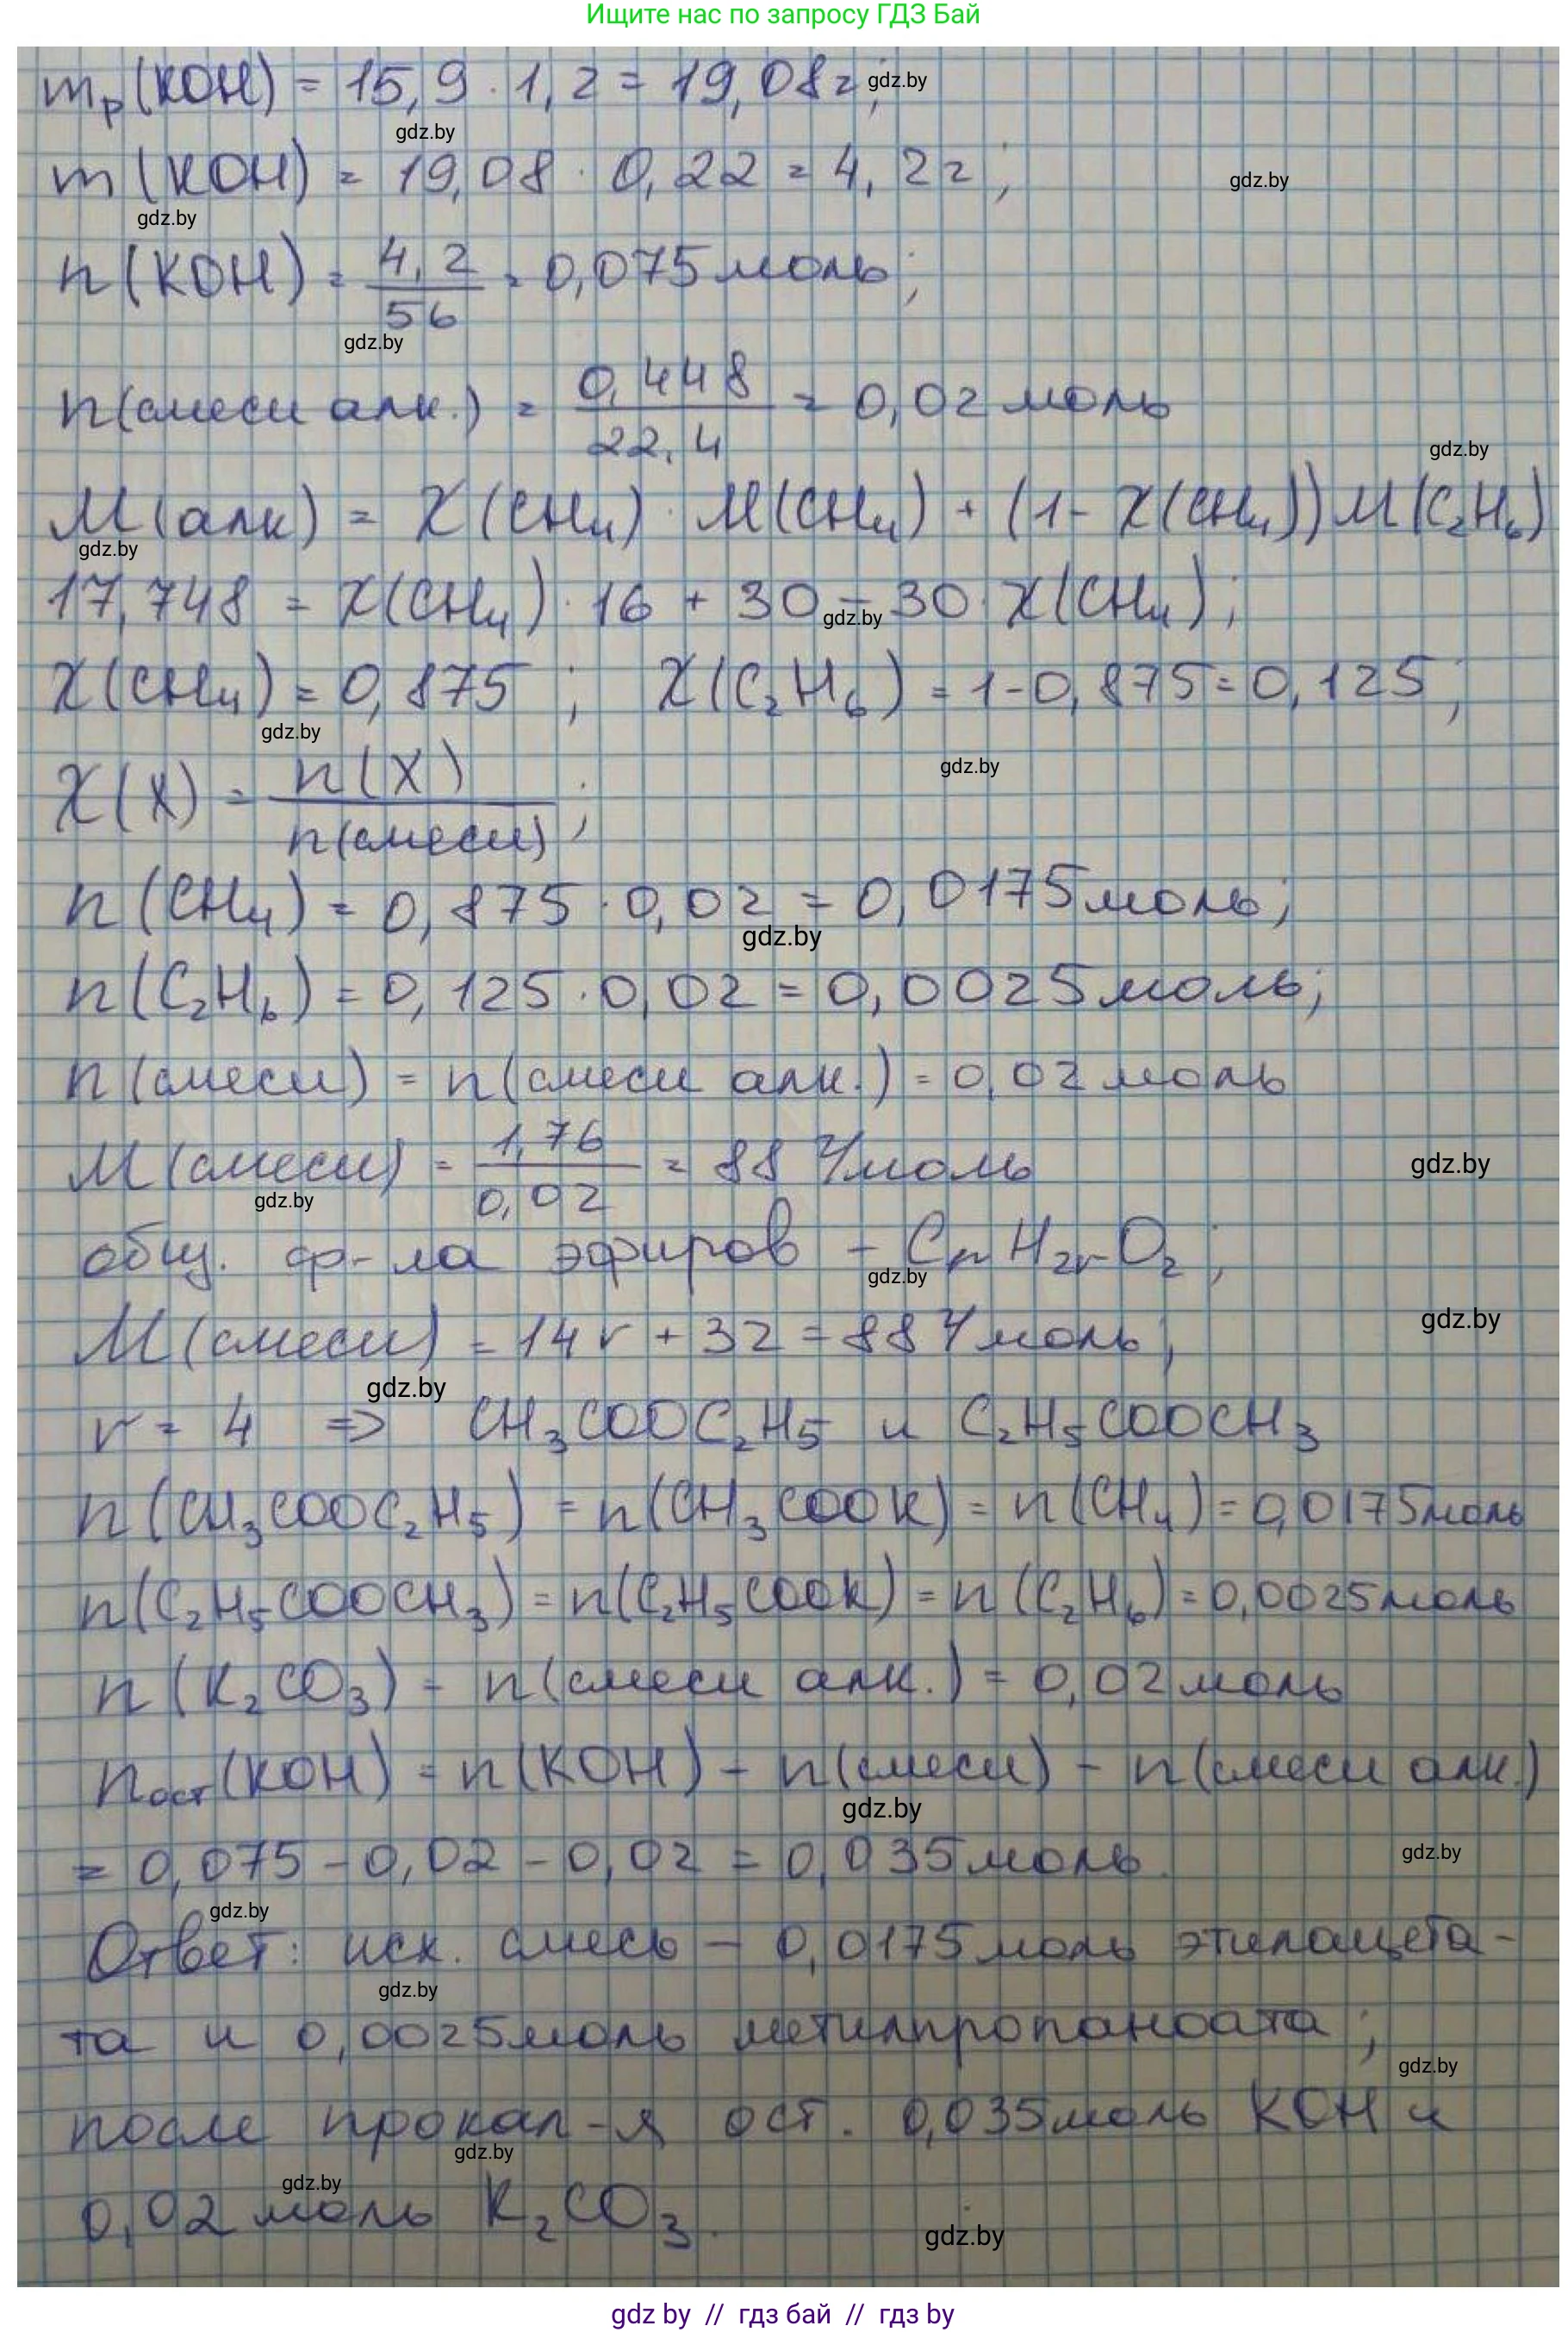 Ищите нас по запросу ГДЗ Бай
mр(KOH) = 15,9 · 1,2 = 19,08г; gdz.by
gdz.by
m(KOH) = 19,08 · 0,22 = 4,2г; gdz.by
gdz.by
n(KOH) = 4,2/56 = 0,075 моль;
gdz.by
n(смеси алк.) = 0,448/22,4 = 0,02 моль
gdz.by
M(алк) = X(CH₄) · M(CH₄) + (1 - X(CH₄)) M(C₂H₆)
gdz.by
17,748 = X(CH₄) · 16 + 30 - 30 · X(CH₄);
gdz.by
X(CH₄) = 0,875 ; X(C₂H₆) = 1 - 0,875 = 0,125;
gdz.by
gdz.by
X(X) = n(X)/n(смеси);
n(CH₄) = 0,875 · 0,02 = 0,0175 моль;
gdz.by
n(C₂H₆) = 0,125 · 0,02 = 0,0025 моль;
n(смеси) = n(смеси алк.) = 0,02 моль
M(смеси) = 1,76/0,02 = 88 г/моль
gdz.by
gdz.by
общ. ф-ла эфиров - CnH2nO₂;
gdz.by
M(смеси) = 14n + 32 = 88 г/моль;
gdz.by
gdz.by
n = 4 => CH₃COOC₂H₅ и C₂H₅COOCH₃
n(CH₃COOC₂H₅) = n(CH₃COOK) = n(CH₄) = 0,0175 моль
n(C₂H₅COOCH₃) = n(C₂H₅COOK) = n(C₂H₆) = 0,0025 моль
n(K₂CO₃) = n(смеси алк.) = 0,02 моль
nост(KOH) = n(KOH) - n(смеси) - n(смеси алк.)
gdz.by
= 0,075 - 0,02 - 0,02 = 0,035 моль.
gdz.by
gdz.by
Ответ: исх. смесь - 0,0175 моль этилацета-
gdz.by
та и 0,0025 моль метилпропаноата;
gdz.by
после прокал-я ост. 0,035 моль KOH и
gdz.by
gdz.by
0,02 моль K₂CO₃.
gdz.by
gdz by // гдз бай // гдз by